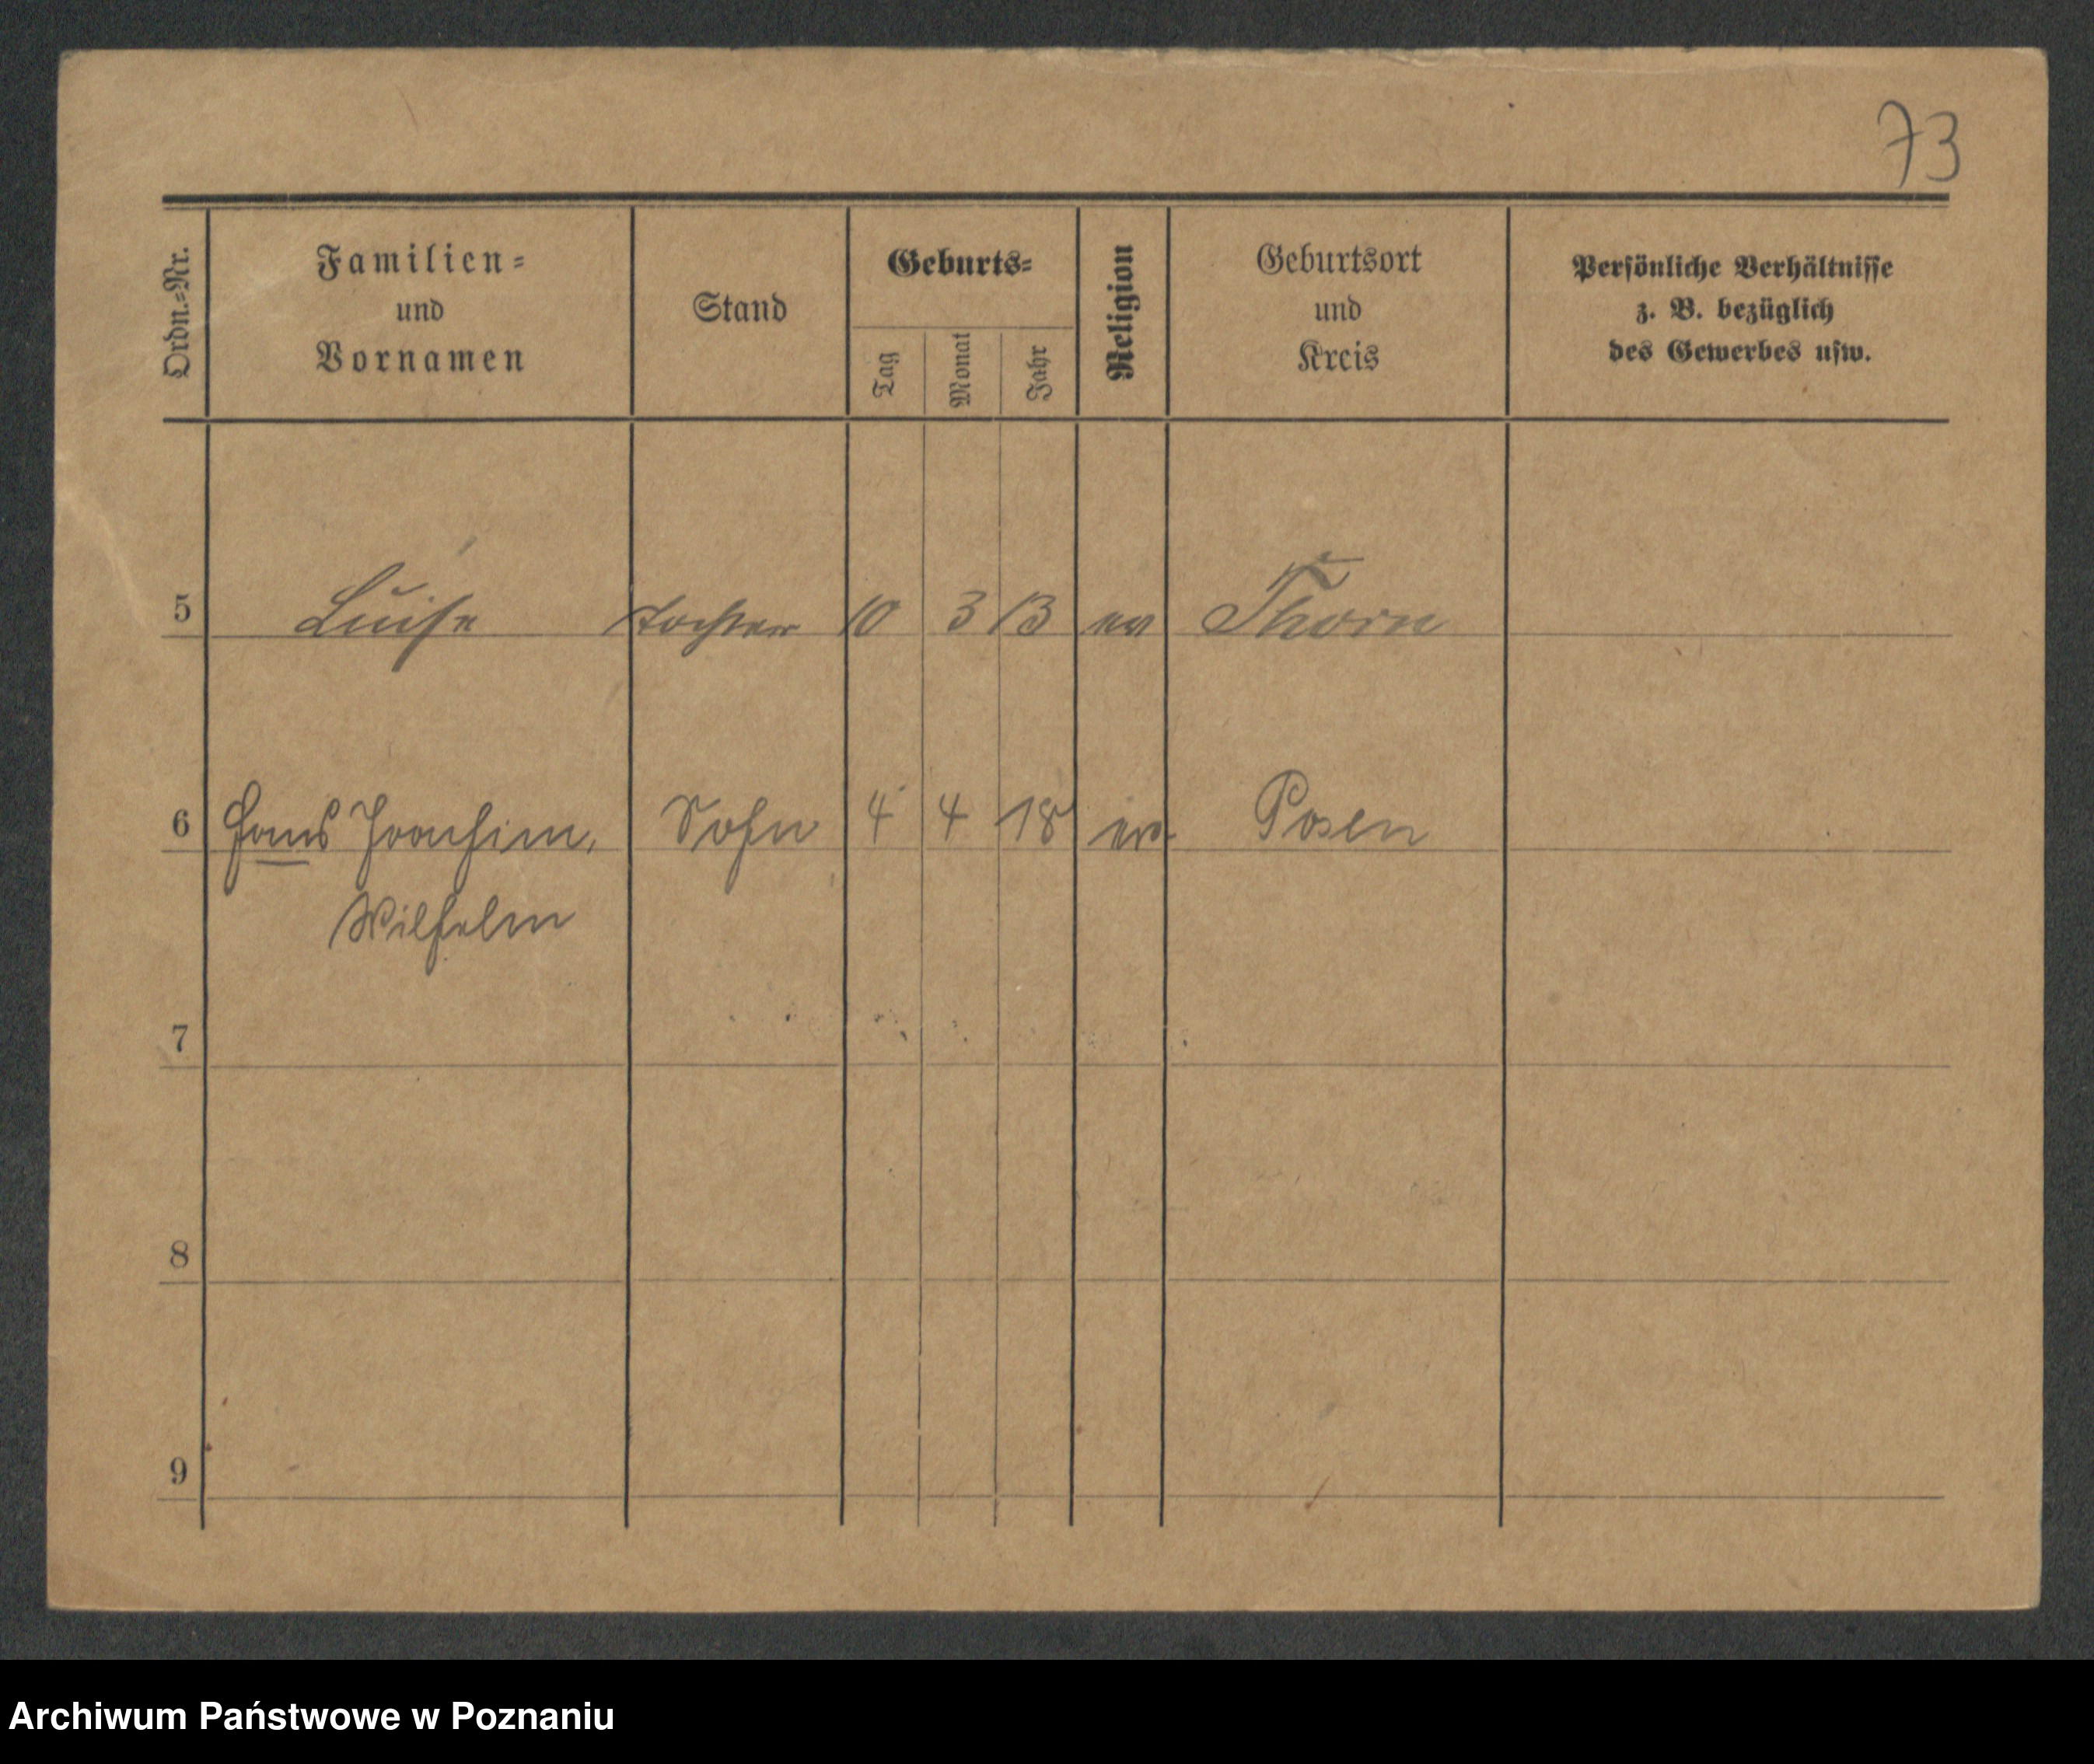 73
Ordn.-Nr.
Familien-
und
Vornamen
Stand
Geburts-
Tag
Monat
Jahr
Religion
Geburtsort
und
Kreis
Persönliche Verhältnisse
z. B. bezüglich
des Gewerbes usw.
5 Luise Tochter 10 3 13 ev Thorn
6 Hans Joachim, Sohn 4 4 18 ev. Posen
Wilhelm
7
8
9
Archiwum Państwowe w Poznaniu